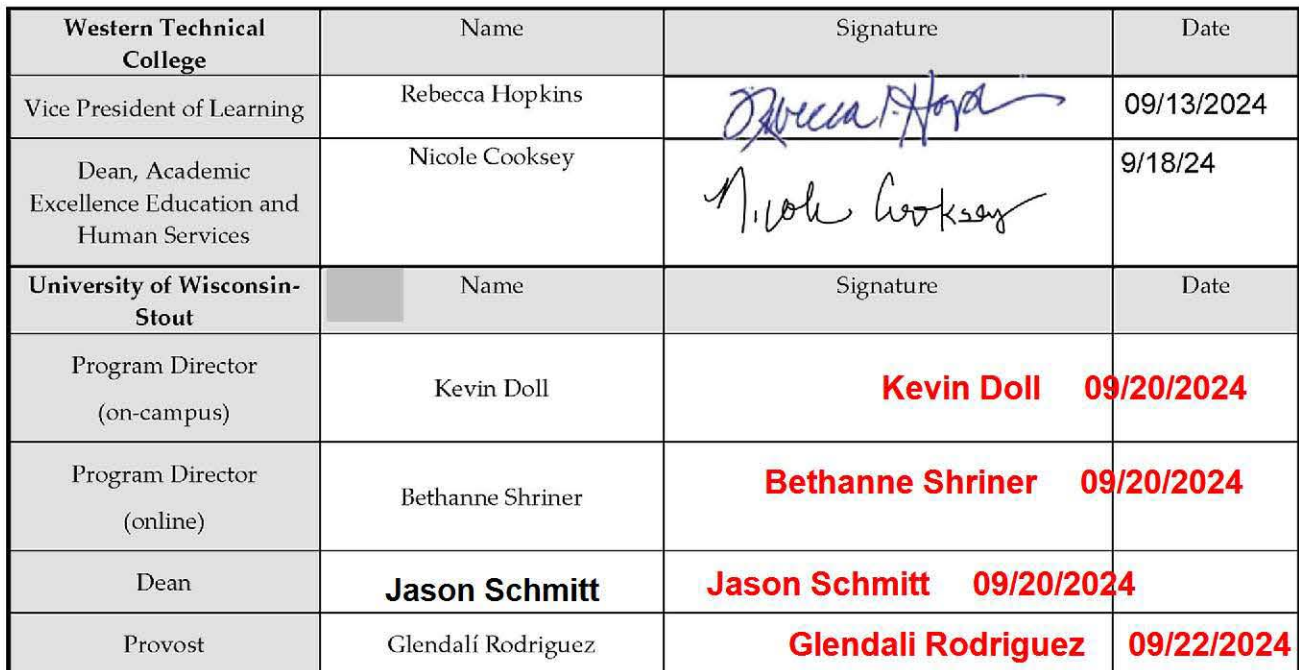 Western Technical College Name Signature Date
Vice President of Learning Rebecca Hopkins Rebecca A. Hopk 09/13/2024
Dean, Academic Excellence Education and Human Services Nicole Cooksey Nicole Cooksey 9/18/24
University of Wisconsin-Stout Name Signature Date
Program Director (on-campus) Kevin Doll Kevin Doll 09/20/2024
Program Director (online) Bethanne Shriner Bethanne Shriner 09/20/2024
Dean Jason Schmitt Jason Schmitt 09/20/2024
Provost Glendalí Rodriguez Glendali Rodriguez 09/22/2024